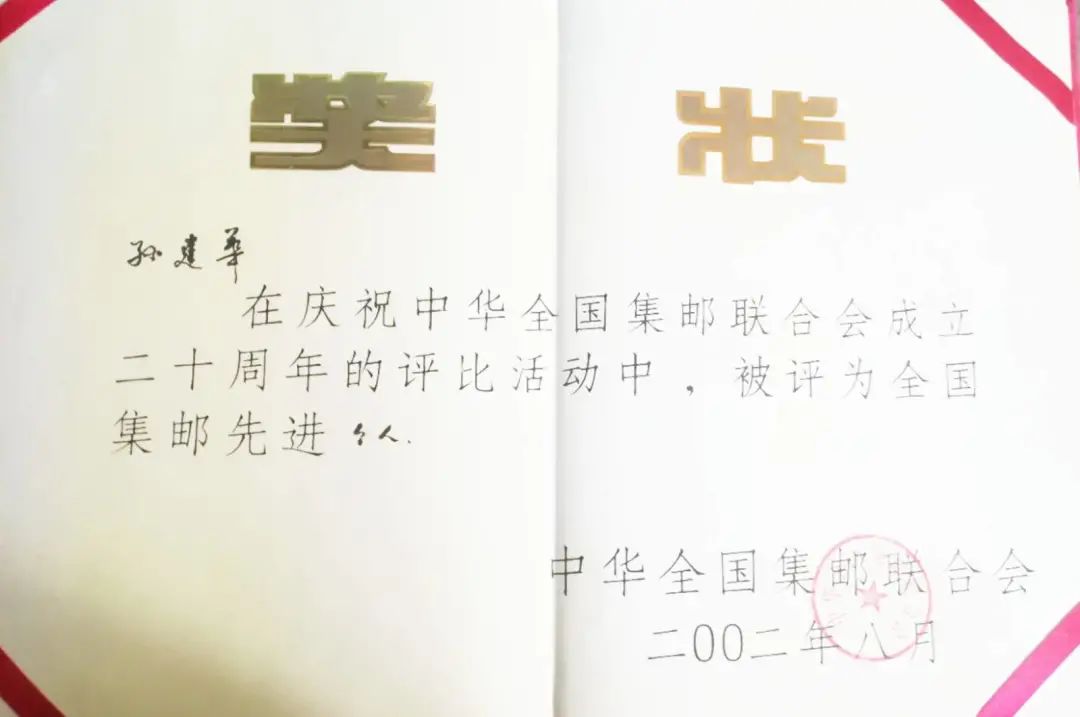 奖状
孙建华
在庆祝中华全国集邮联合会成立
二十周年的评比活动中，被评为全国
集邮先进个人.
中华全国集邮联合会
二00二年八月